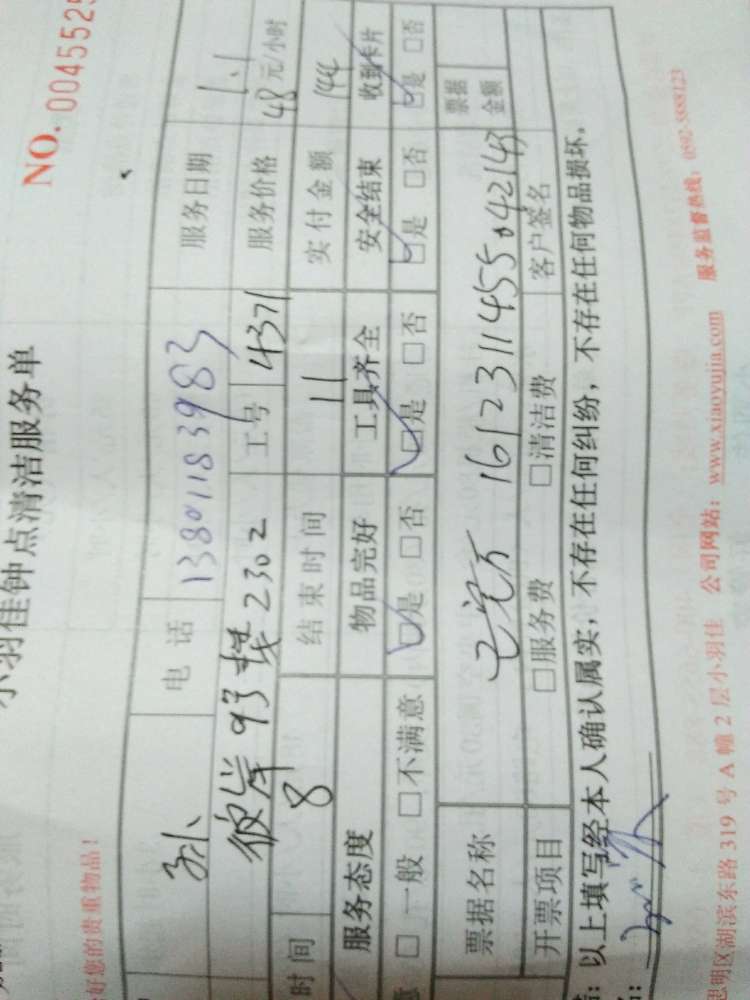 NO. 0045525
小羽佳钟点清洁服务单
好您的贵重物品!
孙 电话 13801183983 服务日期 1.1
彼岸93楼2302 工号 4371 服务价格 48元/小时
时间 8 结束时间 11 实付金额 144
服务态度 物品完好 工具齐全 安全结束 收到卡片
意 □一般 □不满意 ☑是 □否 ☑是 □否 ☑是 □否 ☑是 □否
票据名称 1612311455042143 票据金额
开票项目 □服务费 □清洁费 客户签名
:以上填写经本人确认属实,不存在任何纠纷,不存在任何物品损坏。
思明区湖滨东路319号A幢2层小羽佳 公司网站:www.xiaoyujia.com 服务监督热线:0592-5888123